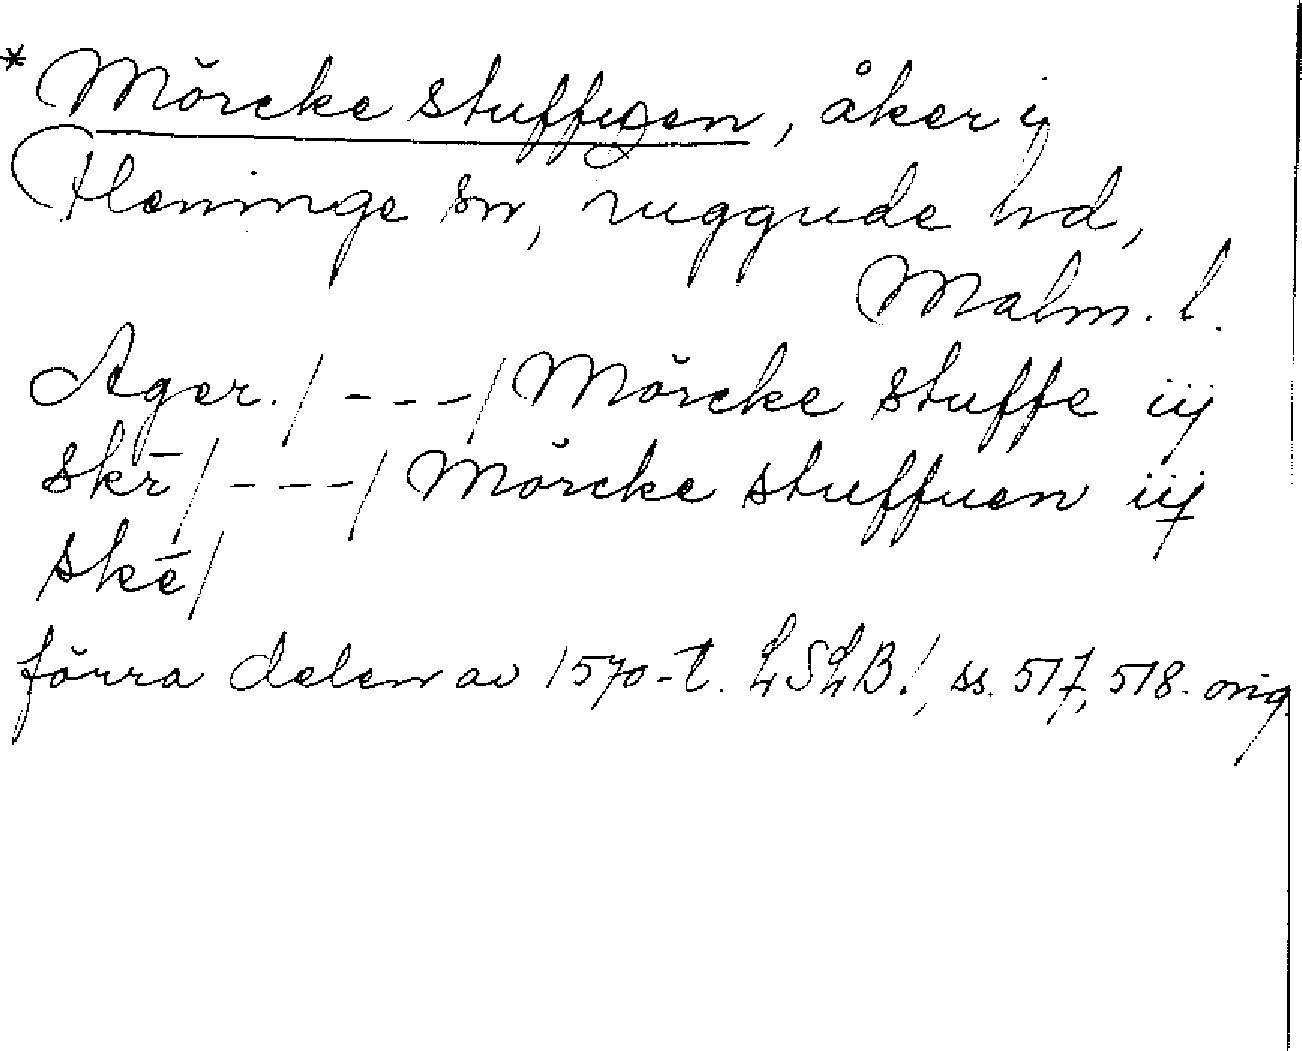 * Mörcke stuffuen, åker i
Fleninge sn, Luggude hd,
Malm. l.
Ager. / --- / Mörcke stuffe iij
skr̄ / --- / Mörcke stuffuen iij
skē /
förra delen av 1570-t. LSLB!, ss. 517, 518. orig.